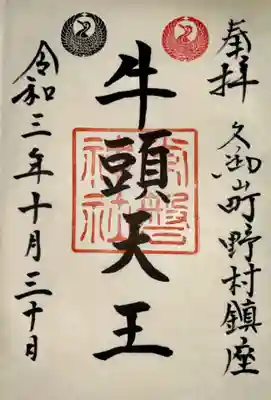 奉拝
久御山町野村鎮座
牛頭天王
常盤神社
令和三年十月三十日